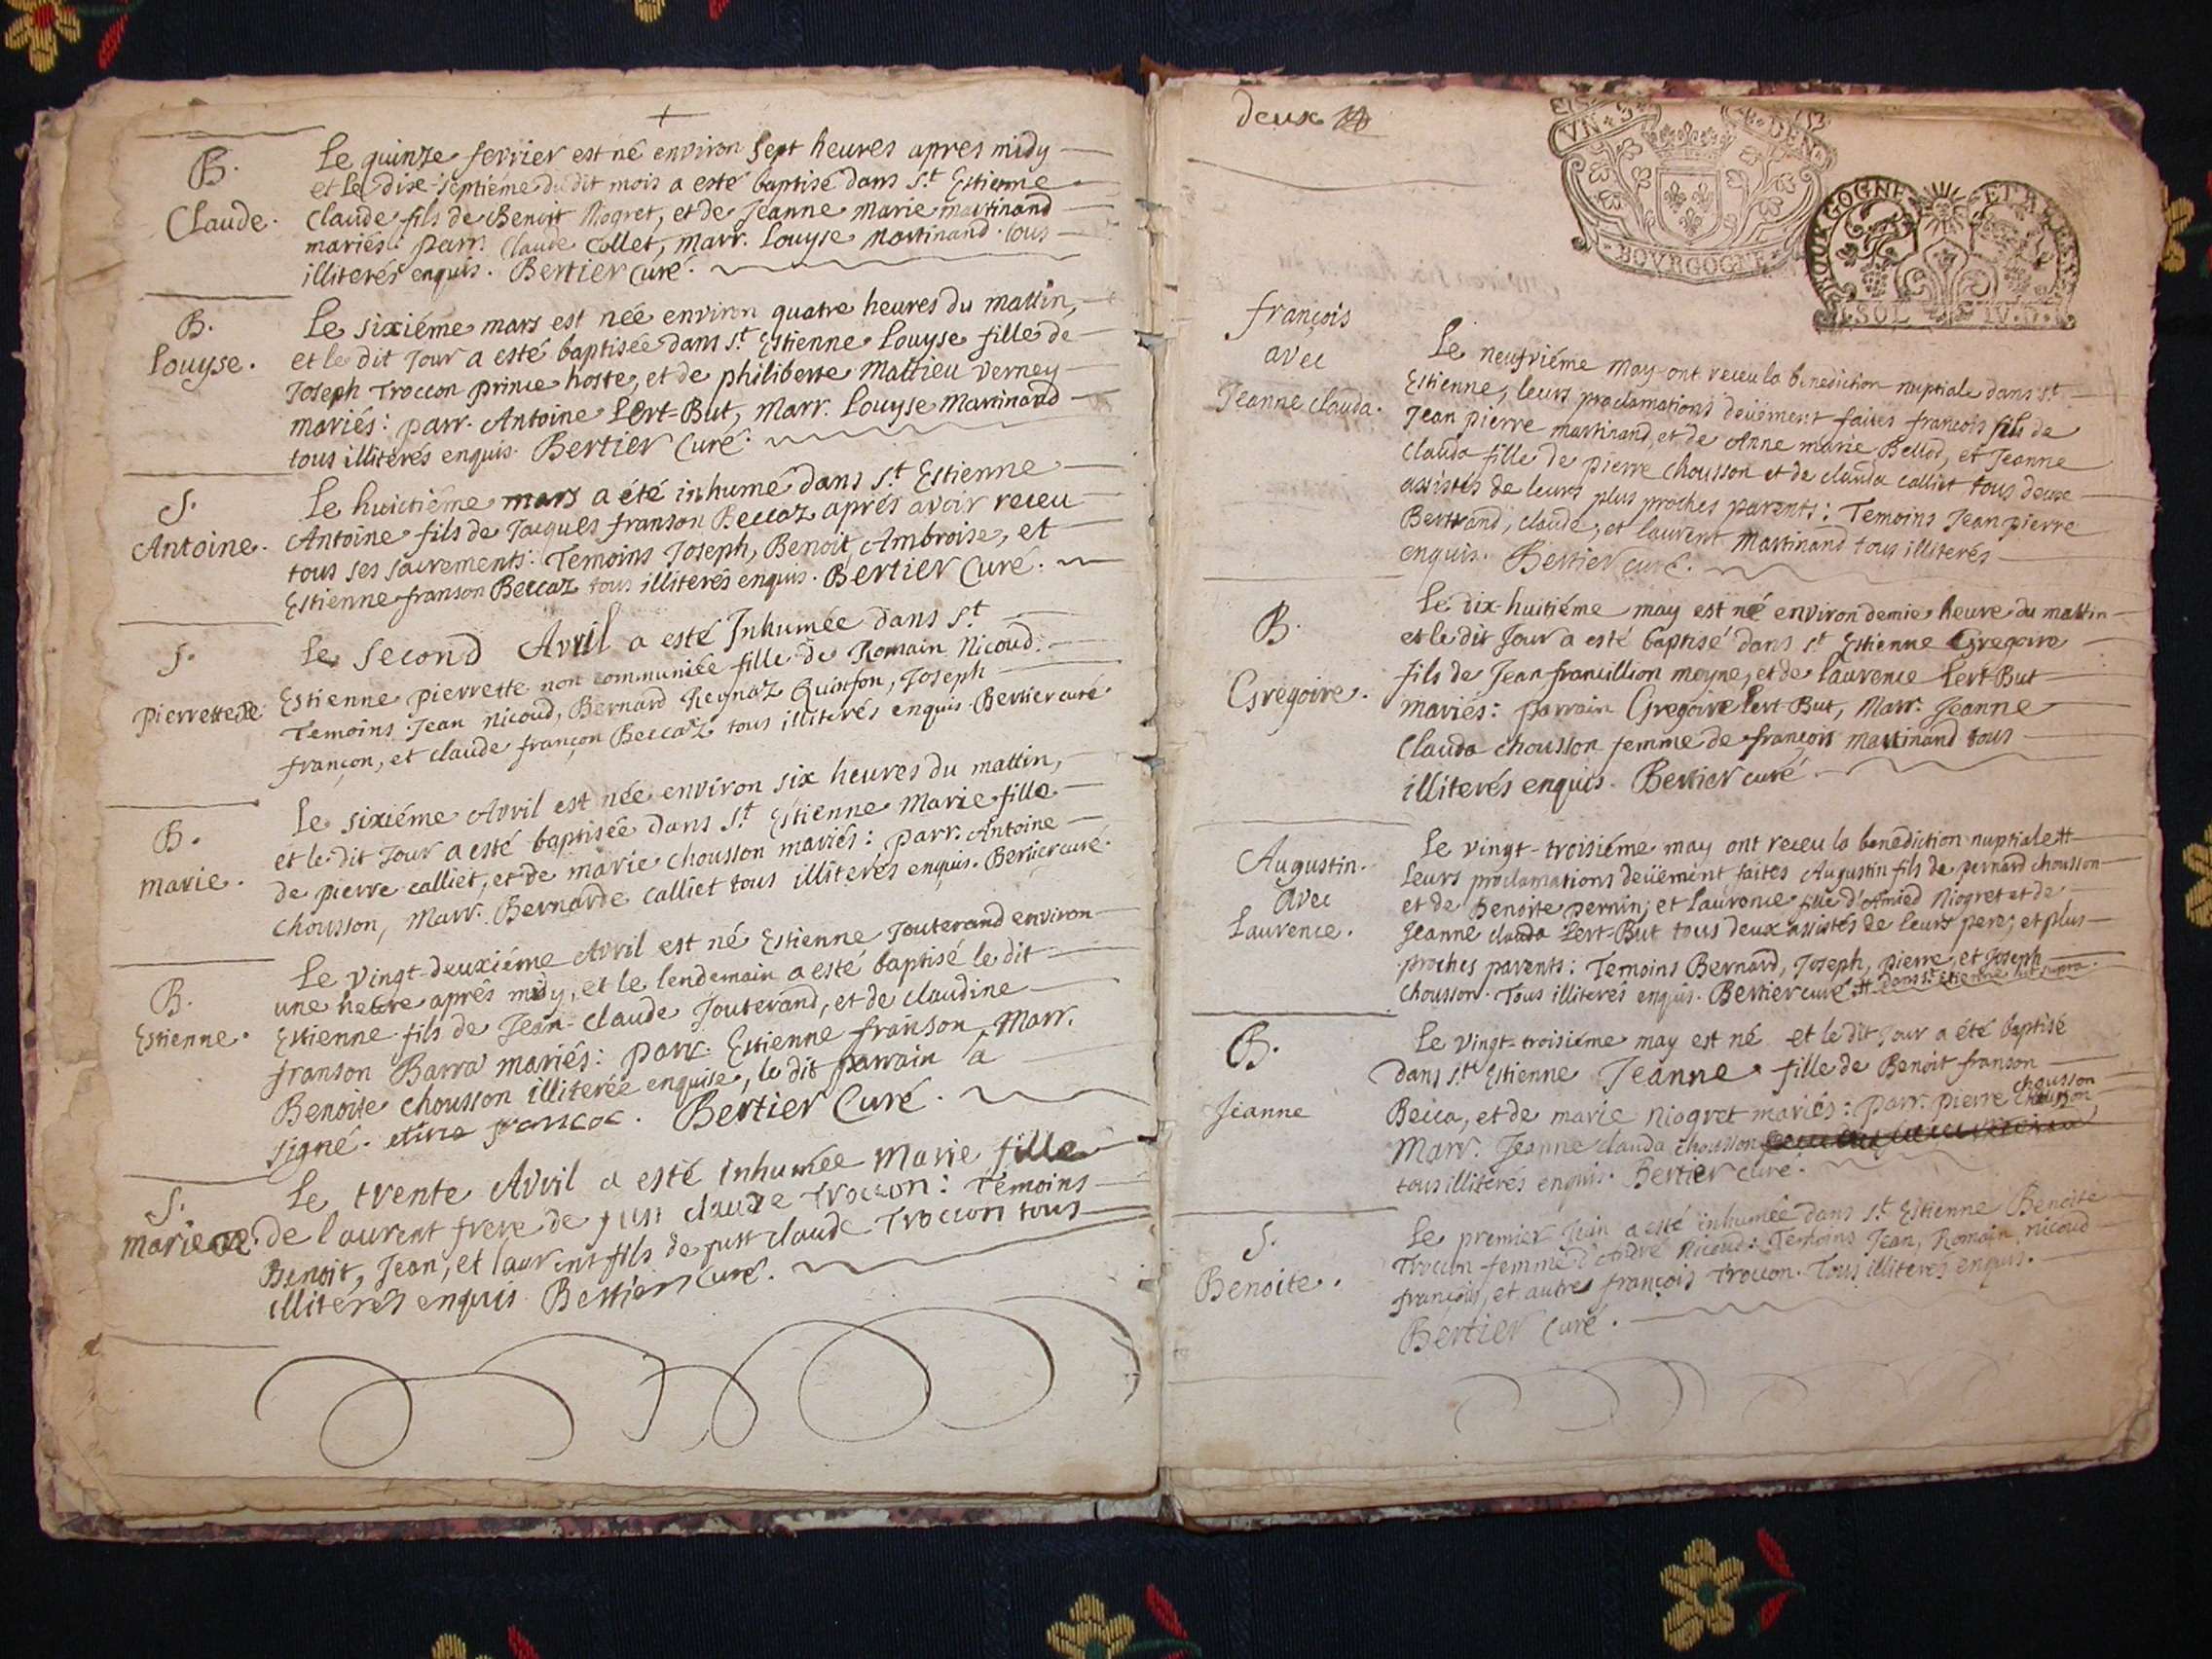 B.
Claude.
Le quinze fevrier est né environ sept heures apres midy
et le dix-septiéme dudit mois a esté baptisé dans St Estienne
Claude fils de Benoit Niogret, et de Jeanne Marie martinand
mariés: parr. Claude Collet, Marr. Louyse Martinand. tous
illiterés enquis. Bertier Curé.
B.
Louyse.
Le sixiéme mars est née environ quatre heures du mattin,
et le dit Jour a esté baptisée dans St Estienne Louyse fille de
Joseph Troccon prince hoste, et de philiberte Mattieu Verney
mariés: parr. Antoine Lert-But, Marr. Louyse Martinand
tous illiterés enquis. Bertier Curé.
S.
Antoine.
Le huictiéme mars a été inhumé dans St Estienne
Antoine fils de Jacques franson Beccaz aprés avoir receu
tous ses sacrements: Temoins Joseph, Benoit, Ambroise, et
Estienne franson Beccaz tous illiterés enquis. Bertier Curé.
S.
pierrette
Le second Avril a esté Inhumée dans St
Estienne pierrette non communiée fille de Romain Nicoud.
Temoins Jean nicoud, Bernard Reynaz Quinson, Joseph
françon, et claude françon Beccaz tous illiterés enquis. Bertier curé
B.
marie.
Le sixiéme Avril est née environ six heures du mattin,
et le dit Jour a esté baptisée dans St Estienne Marie fille
de pierre calliet, et de marie chousson mariés: parr. Antoine
chousson, Marr. Bernarde calliet tous illiterés enquis. Bertier curé.
B.
Estienne.
Le vingt-deuxiéme Avril est né Estienne Jouterand environ
une heure aprés midy, et le lendemain a esté baptisé le dit
Estienne fils de Jean-Claude Jouterand, et de claudine
franson Barra mariés: parr. Estienne franson, Marr.
Benoite chousson illiterée enquise, le dit parrain a
signé. Bertier Curé.
S.
marie
Le trente Avril a esté inhumée Marie fille
de laurent frere de just claude Troccon: Témoins
Benoit, Jean, et laurent fils de just claude Troccon tous
illiterés enquis Bertier Curé.
deux
BOVRGOGNE
françois
avec
Jeanne clauda.
Le neufviéme May ont receu la benediction nuptiale dans St
Estienne, leurs proclamations deüement faites francois fils de
Jean pierre martinand, et de Anne marie Bellod, et Jeanne
Clauda fille de pierre chousson et de clauda calliet tous deux
assistés de leurs plus proches parents: Temoins Jean pierre
Bertrand, claude, et laurent Martinand tous illiterés
enquis. Bertier curé.
B.
Gregoire.
Le dix-huitiéme may est né environ demie heure du mattin
et le dit Jour a esté baptisé dans St Estienne Gregoire
fils de Jean francillion moyne, et de laurence Lert But
mariés: parrain Gregoire lert But, Marr. Jeanne
Clauda chousson femme de françois martinand tous
illiterés enquis. Bertier curé.
Augustin.
avec
Laurence.
Le vingt-troisiéme may ont receu la benediction nuptiale #
leurs proclamations deüement faites Augustin fils de bernard chousson
et de Benoite pernin, et laurence fille d'Amied Niogret et de
Jeanne clauda Lert-But tous deux assistés de leurs pere, et plus
proches parents: Temoins Bernard, Joseph, pierre, et Joseph
chousson. Tous illiterés enquis. Bertier curé. # dans St Estienne ut supra.
B.
Jeanne
Le vingt-troisiéme may est né et le dit Jour a été baptisé
dans St Estienne Jeanne fille de Benoit franson
Becca, et de marie Niogret mariés: parr. pierre chousson
Marr. Jeanne clauda chousson
tous illiterés enquis. Bertier curé.
S.
Benoite.
Le premier Juin a esté inhumée dans St Estienne Benoite
Troccon femme d'André Nicoud: Temoins Jean, Romain nicoud
françois, et autres françois Troccon. Tous illiterés enquis.
Bertier Curé.